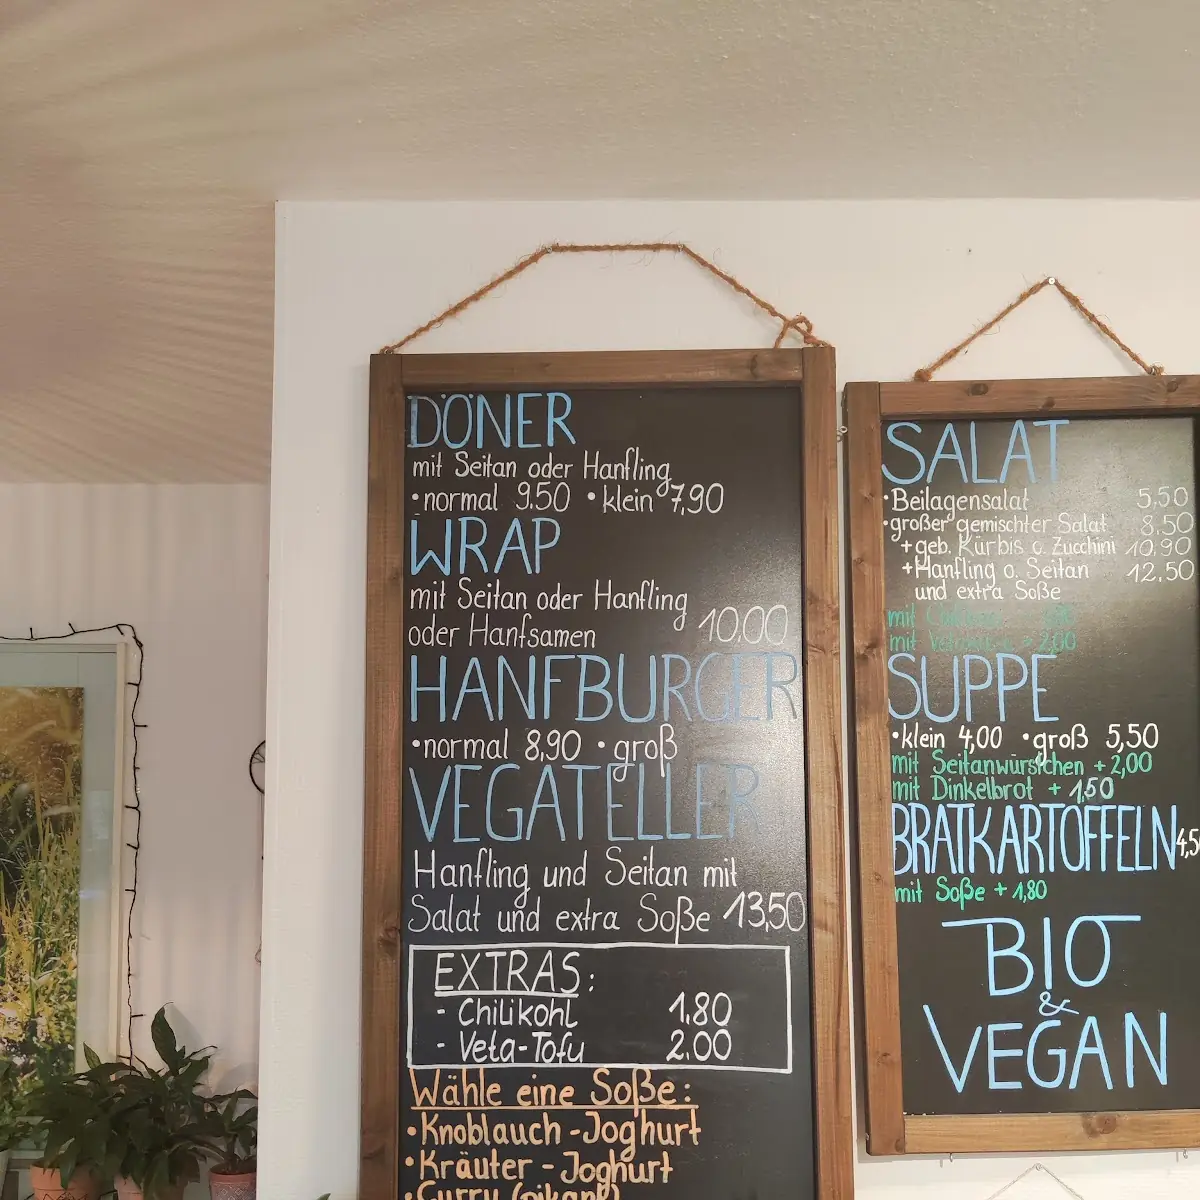 DÖNER
mit Seitan oder Hanfling
• normal 9.50 • klein 7,90
WRAP
mit Seitan oder Hanfling
oder Hanfsamen 10,00
HANFBURGER
• normal 8,90 • groß
VEGATELLER
Hanfling und Seitan mit
Salat und extra Soße 13,50
EXTRAS:
- Chilikohl 1.80
- Veta-Tofu 2.00
Wähle eine Soße:
• Knoblauch-Joghurt
• Kräuter-Joghurt
• Curry (pikant)
SALAT
• Beilagensalat 5,50
• großer gemischter Salat 8,50
+ geb. Kürbis o. Zucchini 10,90
+ Hanfling o. Seitan 12,50
und extra Soße
mit
mit + 2,00
SUPPE
• klein 4,00 • groß 5,50
mit Seitanwürstchen + 2,00
mit Dinkelbrot + 1,50
BRATKARTOFFELN
mit Soße + 1,80
BIO
&
VEGAN